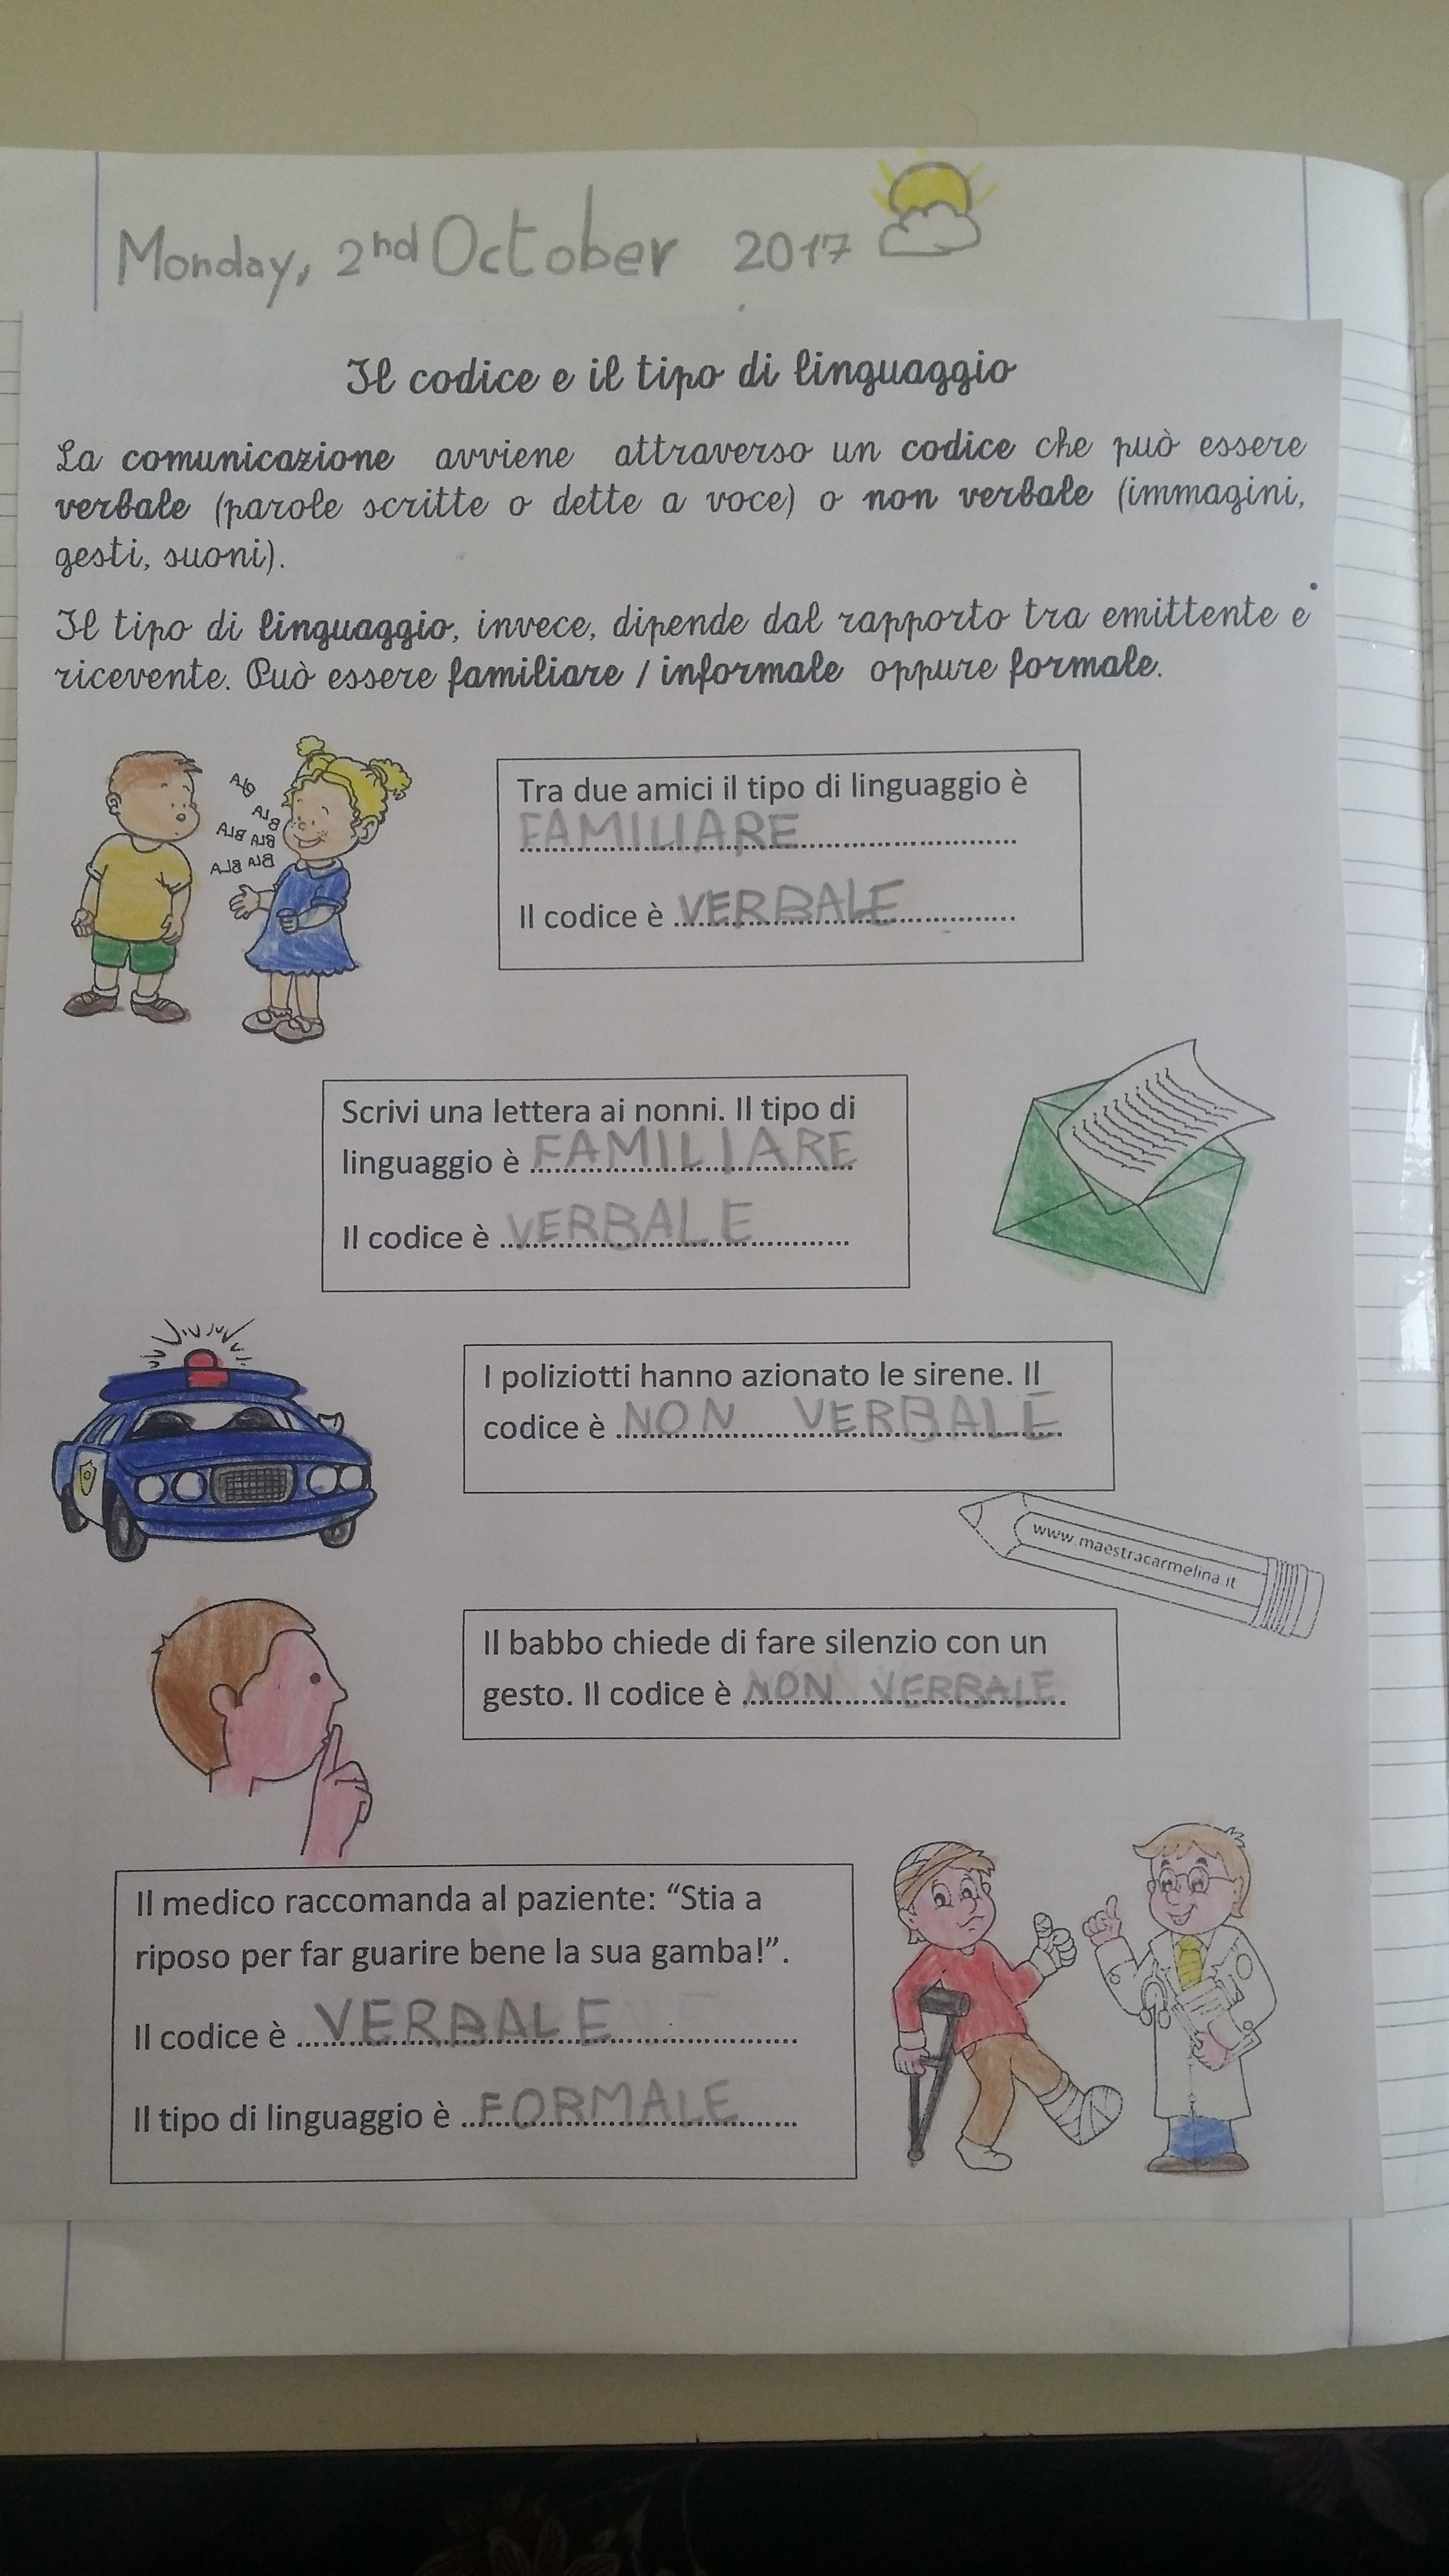 Monday, 2nd October 2017
Il codice e il tipo di linguaggio
La comunicazione avviene attraverso un codice che può essere
verbale (parole scritte o dette a voce) o non verbale (immagini,
gesti, suoni).
Il tipo di linguaggio, invece, dipende dal rapporto tra emittente e
ricevente. Può essere familiare / informale oppure formale.
BLA
BLA
BLA BLA
BLA BLA
Tra due amici il tipo di linguaggio è
FAMILIARE
Il codice è VERBALE
Scrivi una lettera ai nonni. Il tipo di
linguaggio è FAMILIARE
Il codice è VERBALE
I poliziotti hanno azionato le sirene. Il
codice è NON VERBALE
www.maestracarmelina.it
Il babbo chiede di fare silenzio con un
gesto. Il codice è NON VERBALE
Il medico raccomanda al paziente: “Stia a
riposo per far guarire bene la sua gamba!”.
Il codice è VERBALE
Il tipo di linguaggio è FORMALE